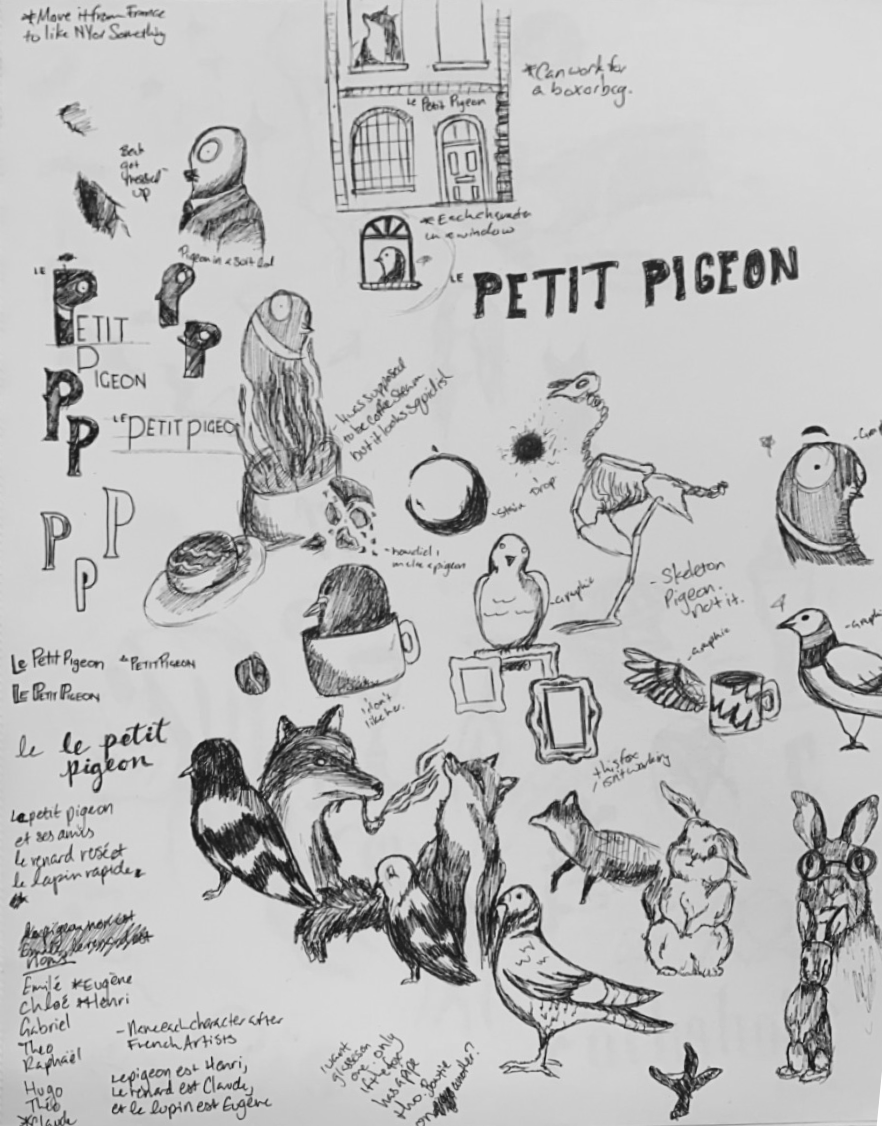 *Move it from France
to like NY or Something
Le Petit Pigeon
*Can work for
a box or bag.
Beak
got
messed
up
*Each character
in a window
Pigeon in a Suit
LE
PETIT
PIGEON
LE PETIT PIGEON
LE PETIT PIGEON
It was supposed
to be coffee steam
but it looks squidish
P
P
P
P
P
-Stain Drop
-how did I
make a pigeon
-graphic
-Skeleton
Pigeon.
not it.
-graphic
-graphic
Le Petit Pigeon
LE PETIT PIGEON
LE PETIT PIGEON
I don't
like her.
le le petit
pigeon
this fox
isn't working
Le petit pigeon
et ses amis
le renard rosé et
le lapin rapide
Noms
Emilé *Eugène
Chloé *Henri
Gabriel
Theo
Raphaël
Hugo
Théo
*Claude
-Name each character after
French Artists
Le pigeon est Henri,
Le renard est Claude,
et le lapin est Eugène
I want
glasses on
one - only
if the fox
has a pipe
tho. Bowtie
on another?